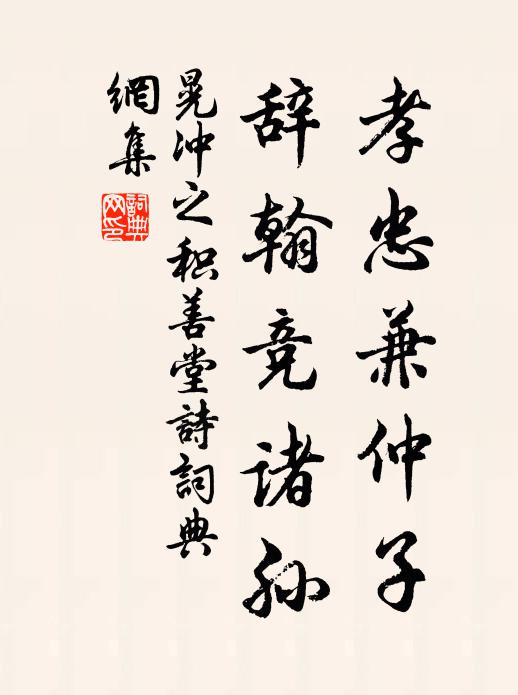 孝忠兼仲子
辞翰竞诸孙
晁冲之积善堂詩詞典
網集
詞典網印